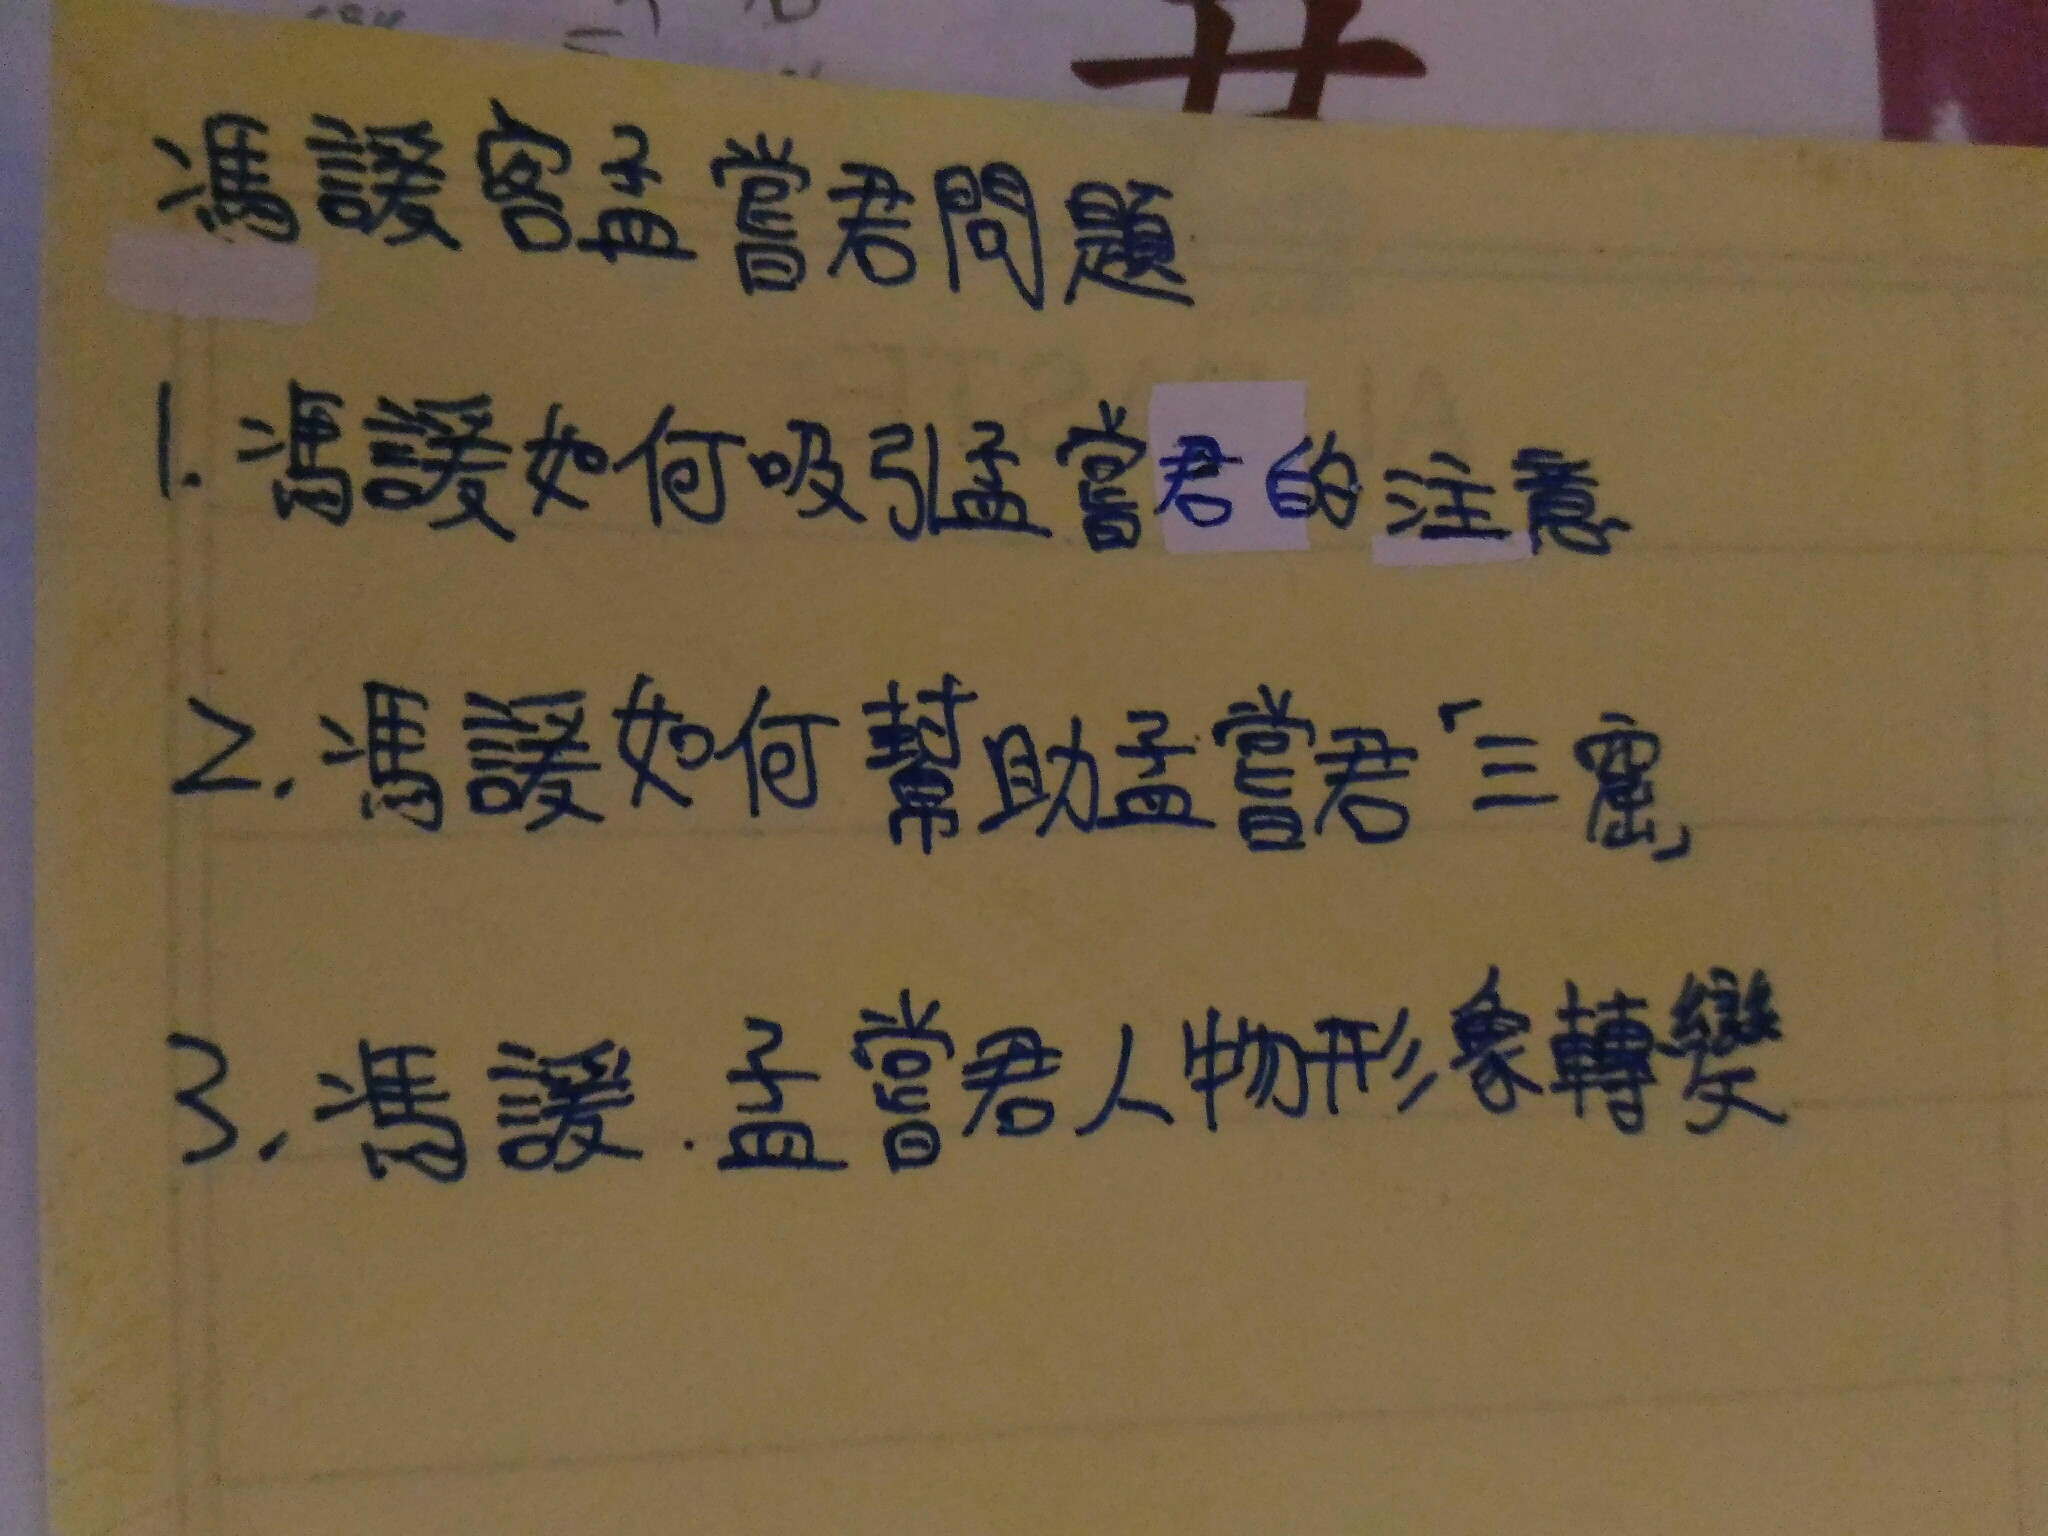 馮諼客孟嘗君問題
1. 馮諼如何吸引孟嘗君的注意
2. 馮諼如何幫助孟嘗君「三窟」
3. 馮諼.孟嘗君人物形象轉變